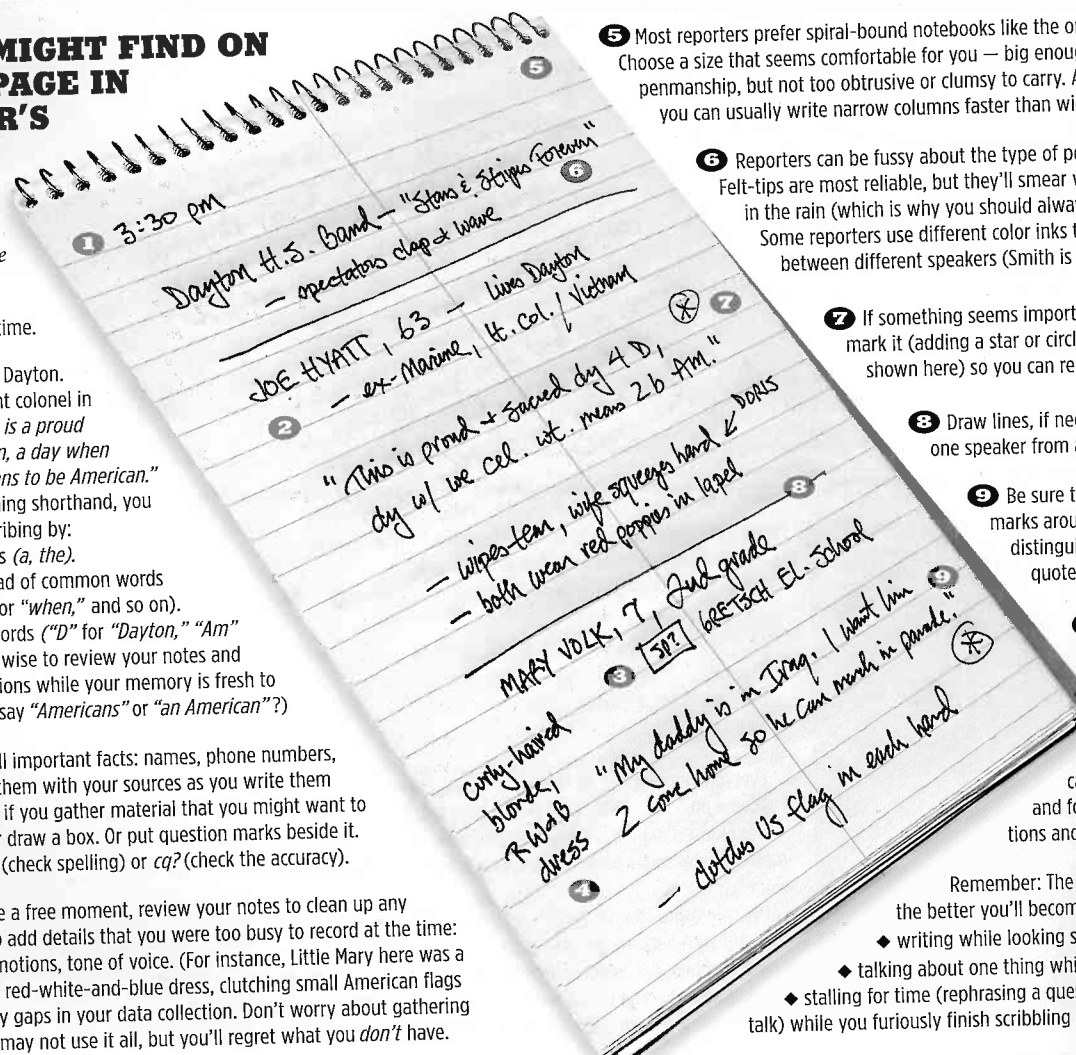 MIGHT FIND ON
PAGE IN
R'S
e
time.
Dayton.
nt colonel in
is a proud
n, a day when
ns to be American."
ning shorthand, you
ribing by:
s (a, the).
ad of common words
or "when," and so on).
ords ("D" for "Dayton," "Am"
wise to review your notes and
ions while your memory is fresh to
say "Americans" or "an American"?)
ll important facts: names, phone numbers,
them with your sources as you write them
if you gather material that you might want to
r draw a box. Or put question marks beside it.
(check spelling) or cq? (check the accuracy).
e a free moment, review your notes to clean up any
o add details that you were too busy to record at the time:
motions, tone of voice. (For instance, Little Mary here was a
red-white-and-blue dress, clutching small American flags
y gaps in your data collection. Don't worry about gathering
may not use it all, but you'll regret what you don't have.
5
1 3:30 pm
Dayton H.S. Band - "Stars & Stripes Forever"
6
- spectators clap & wave
JOE HYATT, 63 - Lives Dayton
- ex-Marine, lt. col. / Vietnam
2
7
"This is proud + sacred dy 4 D,
dy w/ we cel. wt. means 2 b Am."
- wipes tear, wife squeezes hand DORIS
- both wear red poppies in lapel
8
MARY VOLK, 7, 2nd grade
3 SP? GRETSCH EL. School
9
curly-haired
blonde,
RW&B
dress
4
"My daddy is in Iraq. I want him
2 come home so he can march in parade."
- clutches US flag in each hand
5 Most reporters prefer spiral-bound notebooks like the o
Choose a size that seems comfortable for you — big enoug
penmanship, but not too obtrusive or clumsy to carry. A
you can usually write narrow columns faster than wi
6 Reporters can be fussy about the type of pe
Felt-tips are most reliable, but they'll smear
in the rain (which is why you should alwa
Some reporters use different color inks t
between different speakers (Smith is
7 If something seems import
mark it (adding a star or circl
shown here) so you can re
8 Draw lines, if nec
one speaker from a
9 Be sure t
marks arou
distingui
quote
c
and fo
tions and
Remember: The
the better you'll becom
◆ writing while looking s
◆ talking about one thing whi
◆ stalling for time (rephrasing a ques
talk) while you furiously finish scribbling